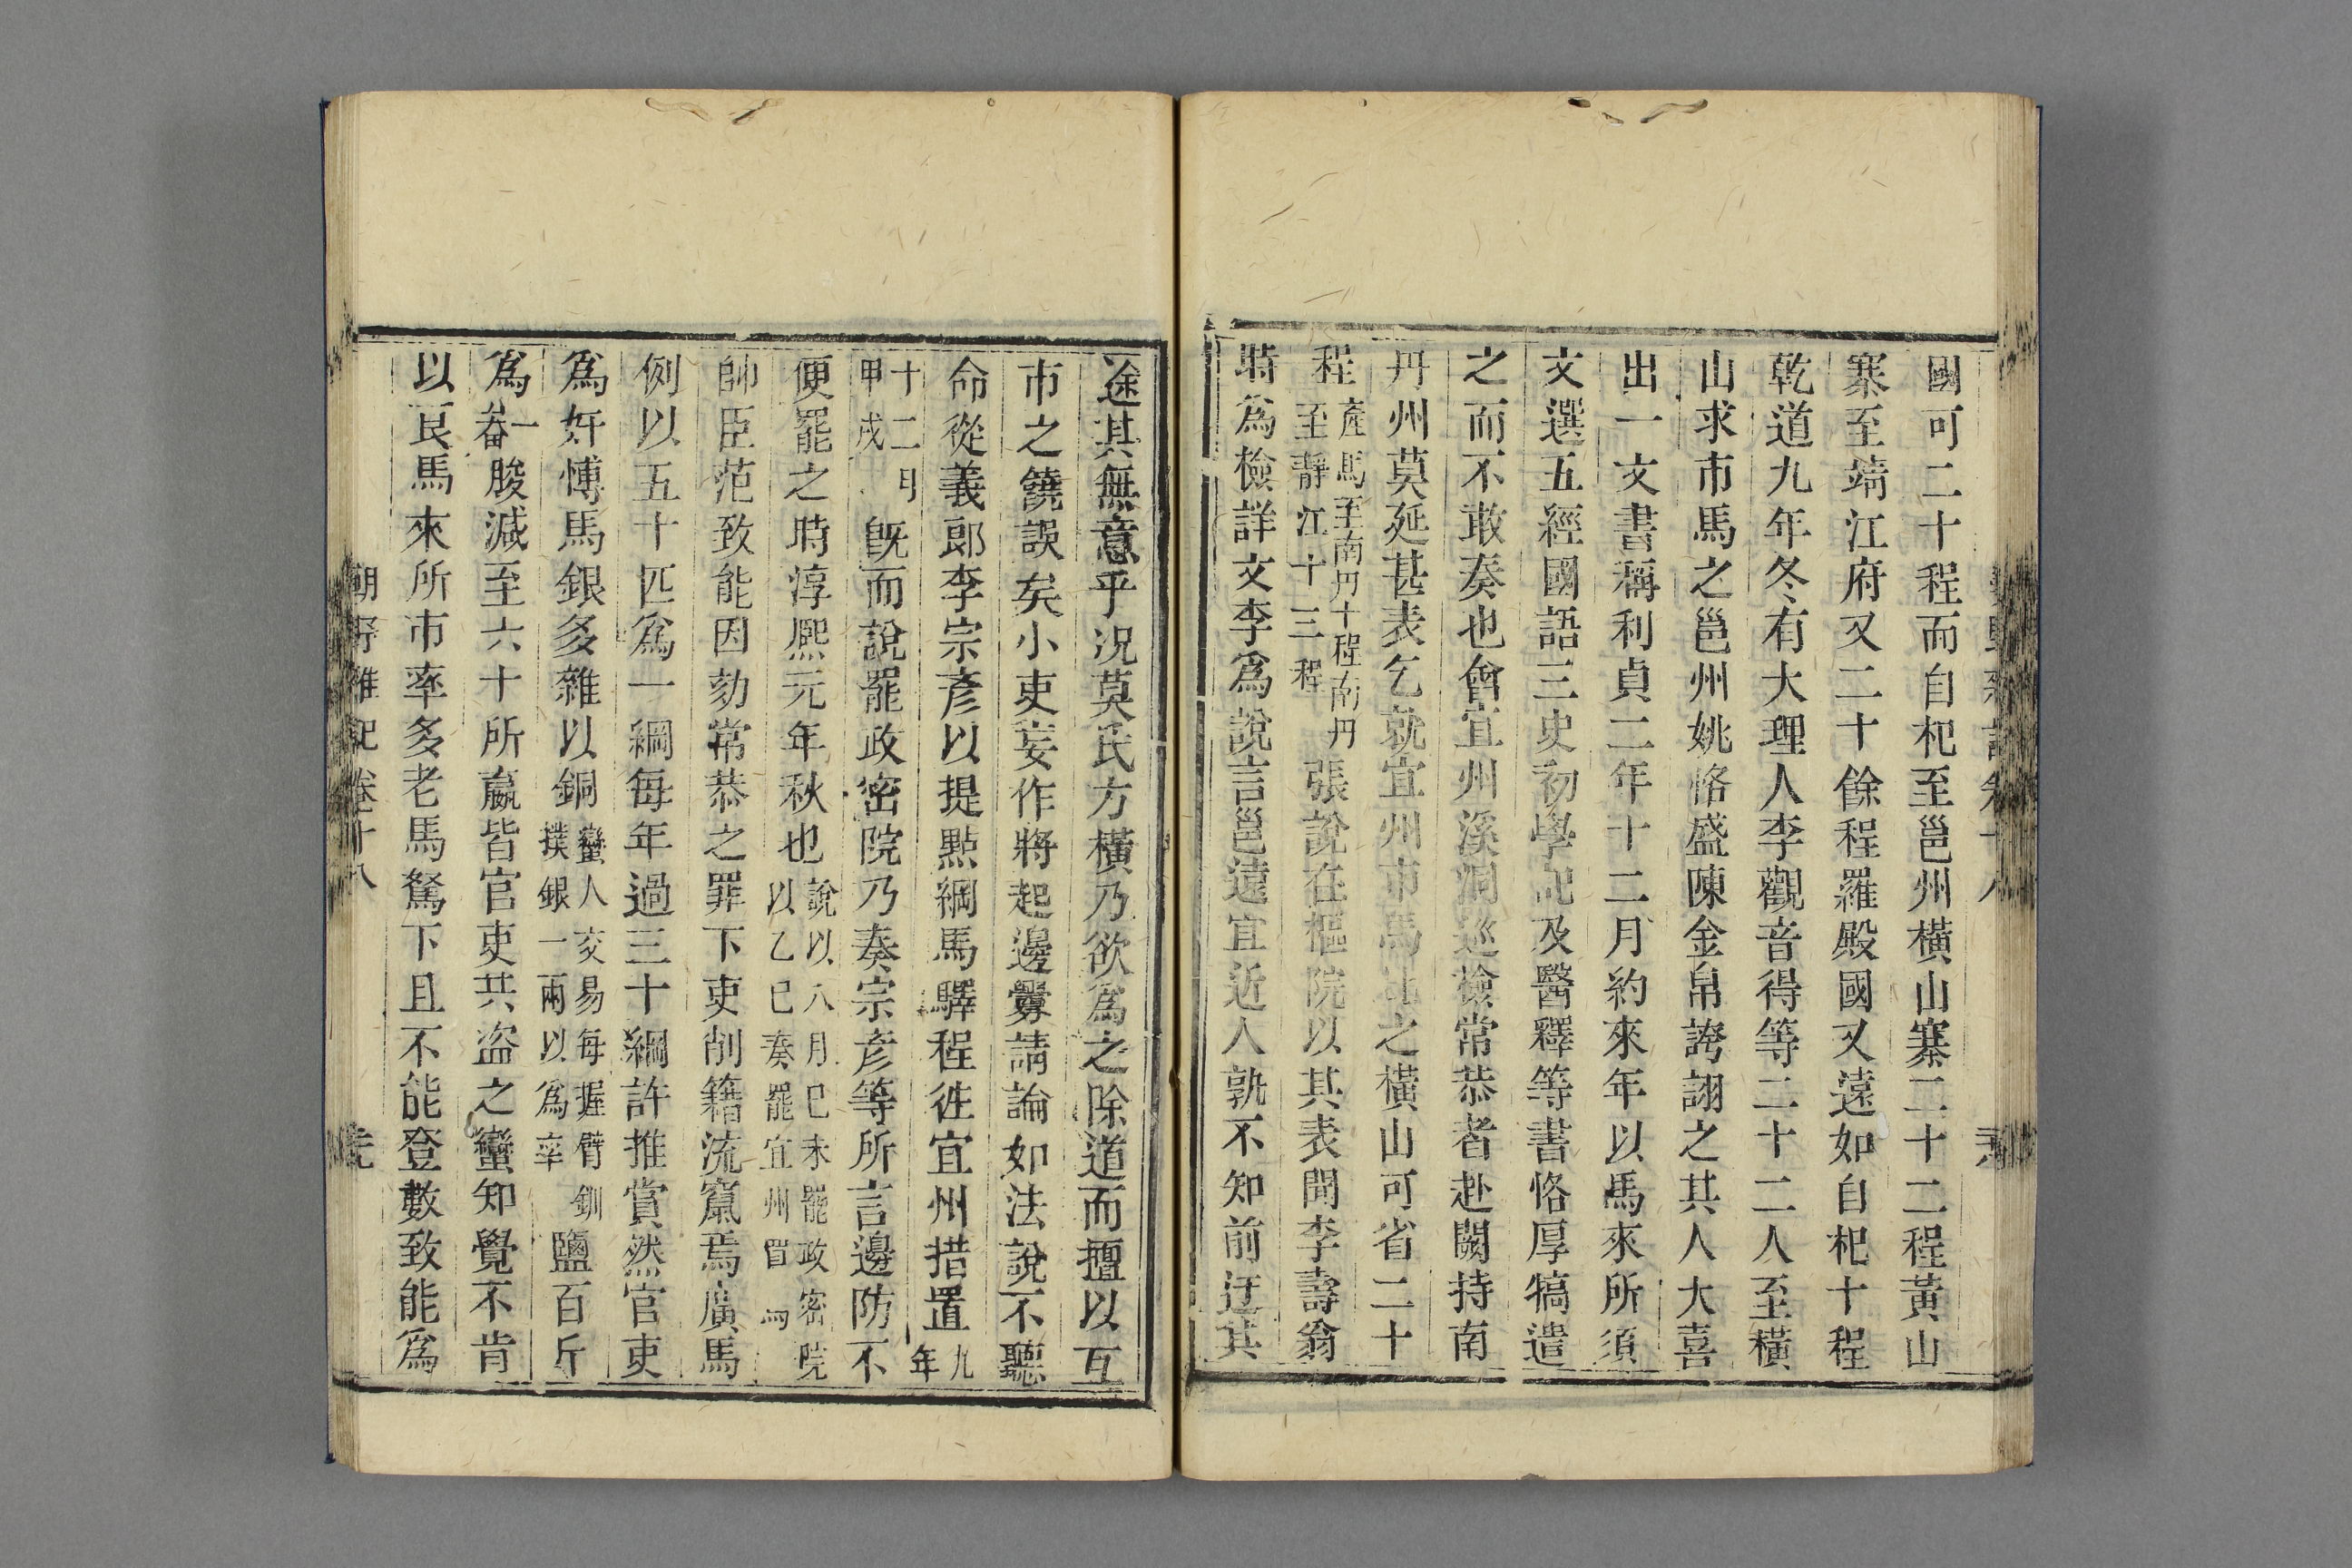 國可二十程而自杞至邕州橫山寨二十二程黃山
寨至靖江府又二十餘程羅殿國又遠如自杞十程
乾道九年冬有大理人李觀音得等二十二人至橫
山求市馬之邕州姚恪盛陳金帛誇詡之其人大喜
出一文書稱利貞二年十二月約來年以馬來所須
文選五經國語三史初學記及醫釋等書恪厚犒遣
之而不敢奏也會宜州溪洞巡檢常恭者赴闕持南
丹州莫延甚表乞就宜州市馬比之橫山可省二十
程產馬至南丹十程南丹至靜江十三程張說在樞院以其表聞李壽翁
時爲檢詳文李爲說言邕遠宜近人孰不知前迂其
途其無意乎況莫氏方橫乃欲爲之除道而擅以互
市之饒誤矣小吏妄作將起邊釁請論如法說不聽
命從義郎李宗彥以提點綱馬驛程徃宜州措置九年
十二月甲戌既而說罷政密院乃奏宗彥等所言邊防不
便罷之時淳熈元年秋也說以八月己未罷政密院以乙巳奏罷宜州買馬
帥臣范致能因劾常恭之罪下吏削籍流竄焉廣馬
例以五十匹爲一綱每年過三十綱許推賞然官吏
爲奸慱馬銀多雜以銅蠻人交易每握臂釧撲銀一兩以爲率鹽百斤
爲一畚朘減至六十所嬴皆官吏共盜之蠻知覺不肯
以良馬來所市率多老馬駑下且不能登數致能爲
朝野雜記卷十八